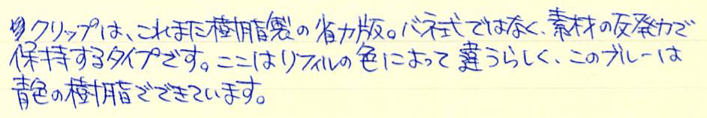 クリップは、これまた樹脂製の省力版。バネ式ではなく、素材の反発力で
保持するタイプです。ここはリフィルの色によって違うらしく、このブルーは
青色の樹脂でできています。